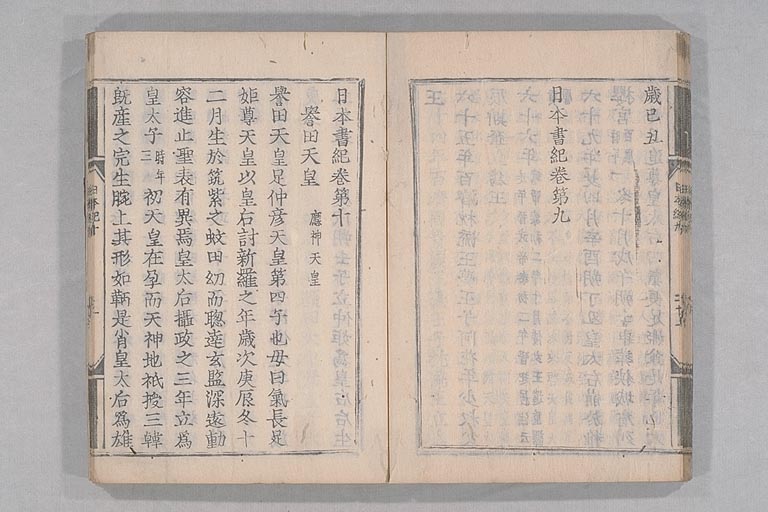 歲已丑
日本書紀卷第九
日本書紀卷第十
譽田天皇 應神天皇
譽田天皇足仲彦天皇第四子也母曰氣長足
姬尊天皇以皇后討新羅之年歲次庚辰冬十
二月生於筑紫之蚊田幼而聰達玄監深遠動
容進止聖表有異焉皇太后攝政之三年立爲
皇太子 時年三 初天皇在孕而天神地祇授三韓
既産之完生腕上其形如鞆是肖皇太后爲雄